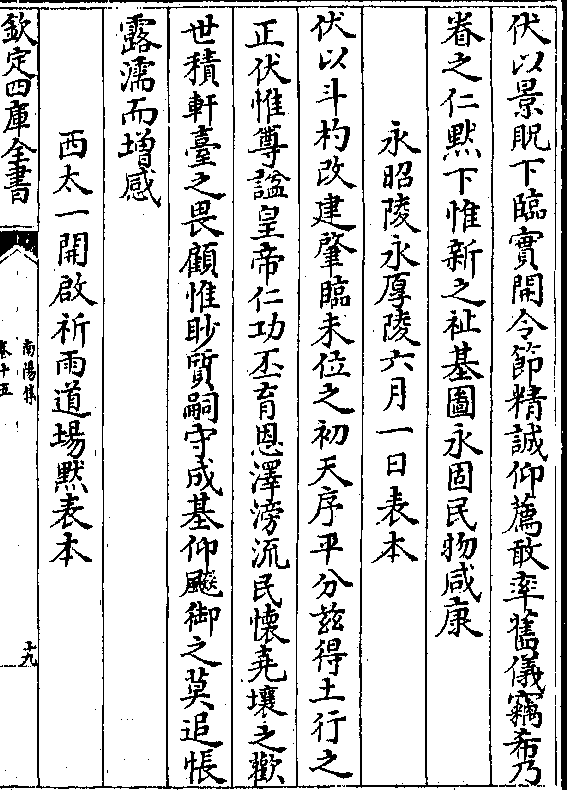 伏以景貺下臨實開令節精誠仰薦敢率舊儀竊希乃
眷之仁黙下惟新之祉基圖永固民物咸康
永昭陵永厚陵六月一日表本
伏以斗杓改建肇臨未位之初天序平分兹得土行之
正伏惟尊諡皇帝仁功丕育恩澤滂流民懐堯壤之歡
世積軒臺之畏顧惟眇質嗣守成基仰飈御之莫追悵
露濡而增感
西太一開啟祈雨道場黙表本
欽定四庫全書
南陽集
卷十五
十九